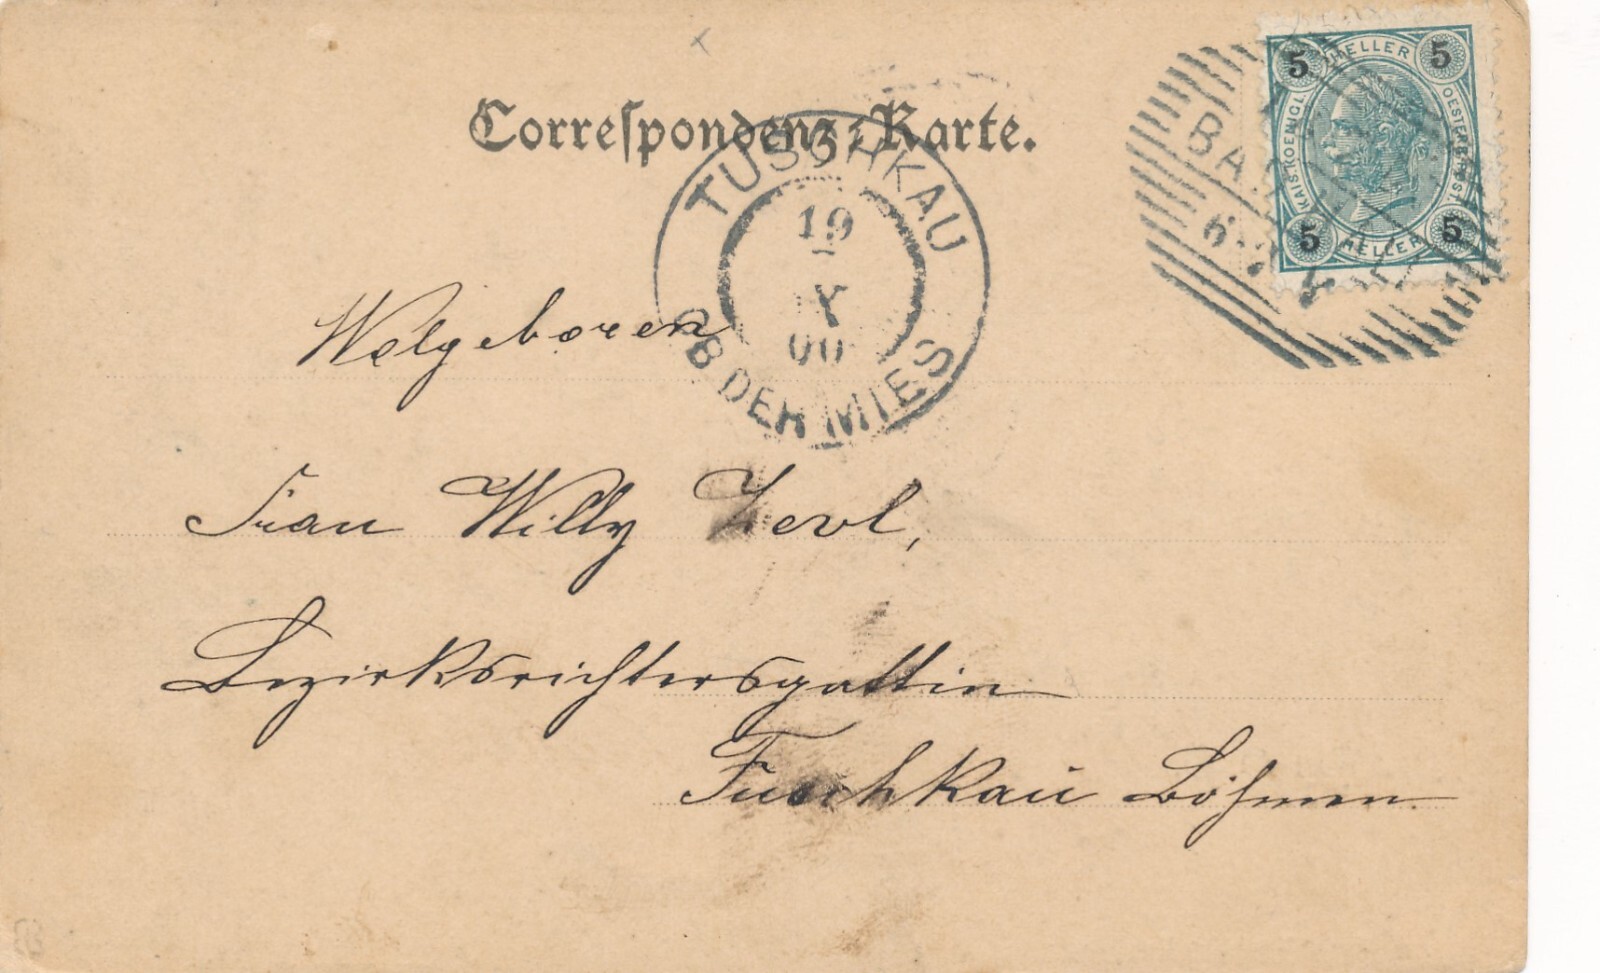 Correspondenz-Karte.
5 HELLER 5
KAIS. KOENIGL. OESTERR. POST.
5 HELLER 5
TUSCHKAU
19
X
00
OB DER MIES
6
Wolgeboren
Frau Willy
Bezirksrichtersgattin
Tuschkau Böhmen